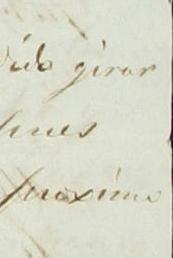 dido girar
lunes
proximo